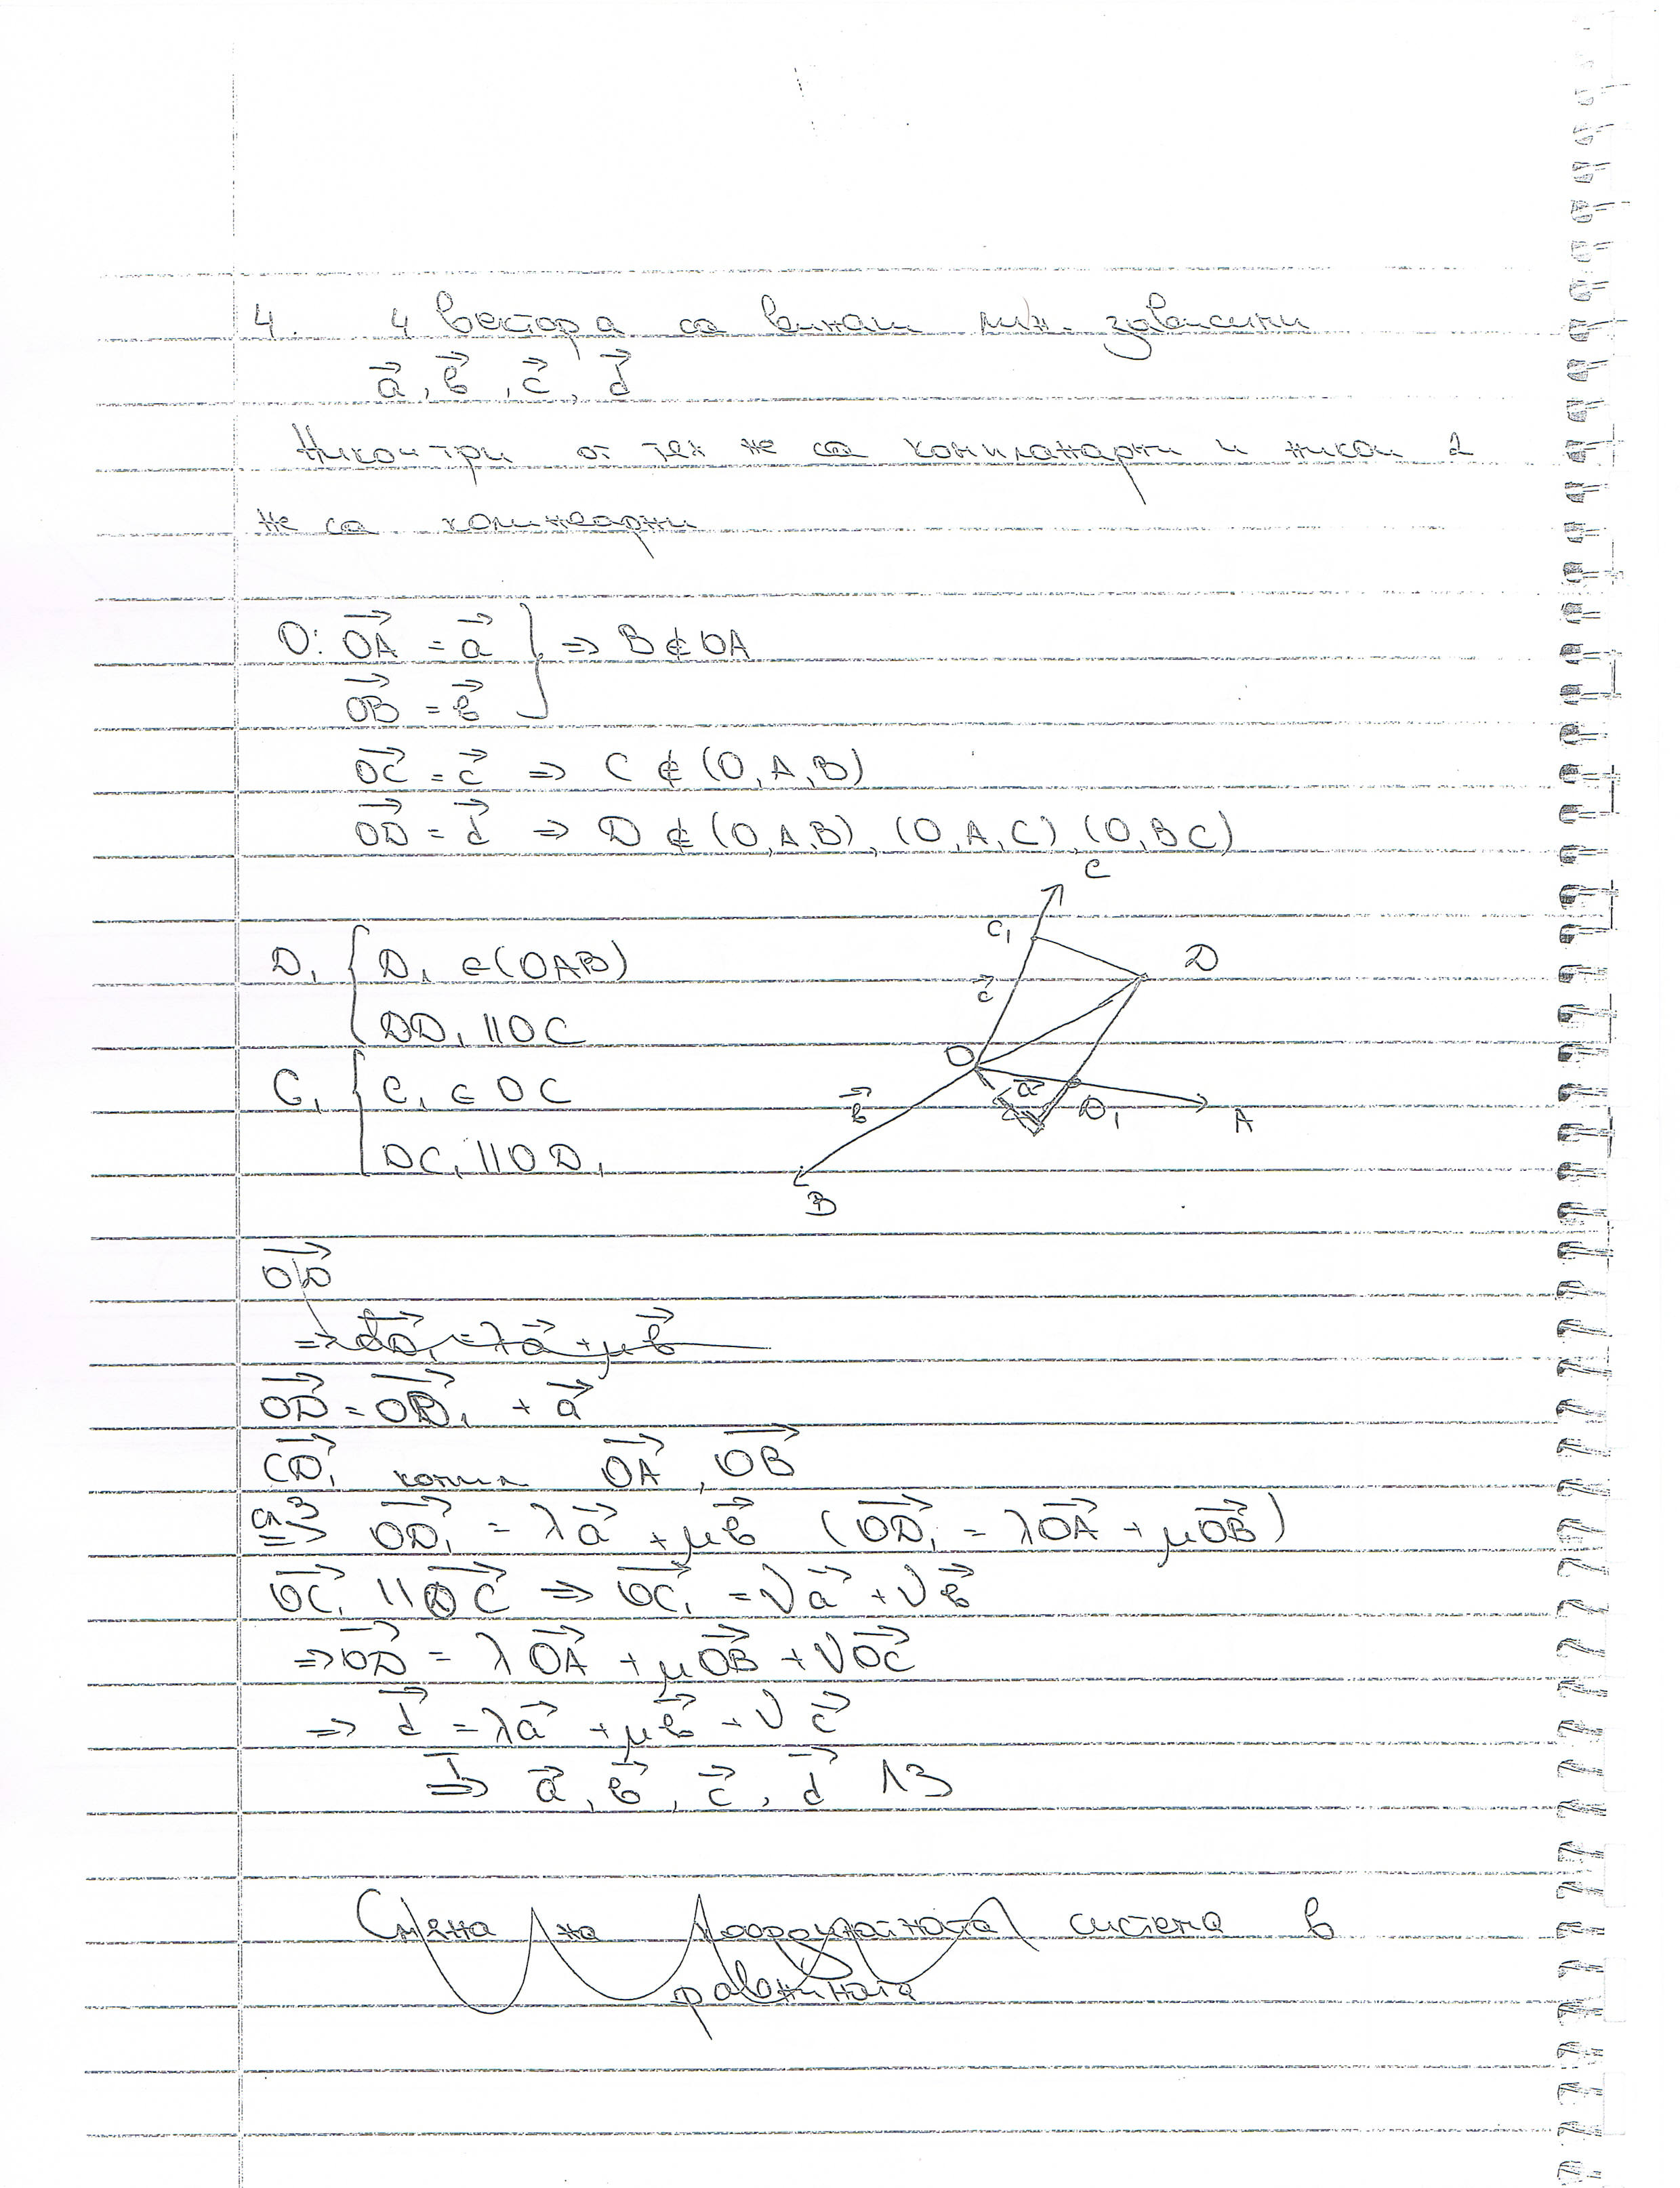 4. 4 вектора са винаги лин. зависими
a⃗, b⃗, c⃗, d⃗
Никои три от тях не са компланарни и никои 2
не са колинеарни
O: OA⃗ = a⃗ } ⇒ B ∉ OA
OB⃗ = b⃗
OC⃗ = c⃗ ⇒ C ∉ (O,A,B)
OD⃗ = d⃗ ⇒ D ∉ (O,A,B), (O,A,C), (O,BC)
D₁ { D₁ ∈ (OAB)
DD₁ || OC
C₁ { C₁ ∈ OC
DC₁ || OD₁
C
C₁
D
c⃗
O
a⃗
b⃗
D₁
A
B
OD⃗
OD⃗ = OD₁⃗ + a⃗
CD₁⃗ компл OA⃗, OB⃗
сл 3 ⇒ OD₁⃗ = λa⃗ + μb⃗ (OD₁⃗ = λOA⃗ + μOB⃗)
OC₁⃗ || OC⃗ ⇒ OC₁⃗ = νa⃗ + νb⃗
⇒ OD⃗ = λOA⃗ + μOB⃗ + νOC⃗
⇒ d⃗ = λa⃗ + μb⃗ + νc⃗
⇒ a⃗, b⃗, c⃗, d⃗ ЛЗ
Смяна на координатната система в
равнината